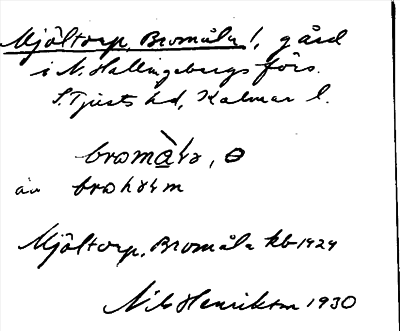 Mjöltorp, Bromåla l, gård
i N. Hallingebergs förs.
S. Tjusts hd, Kalmar l.
än
Mjöltorp, Bromåla kb 1929
Nils Henrikson 1930